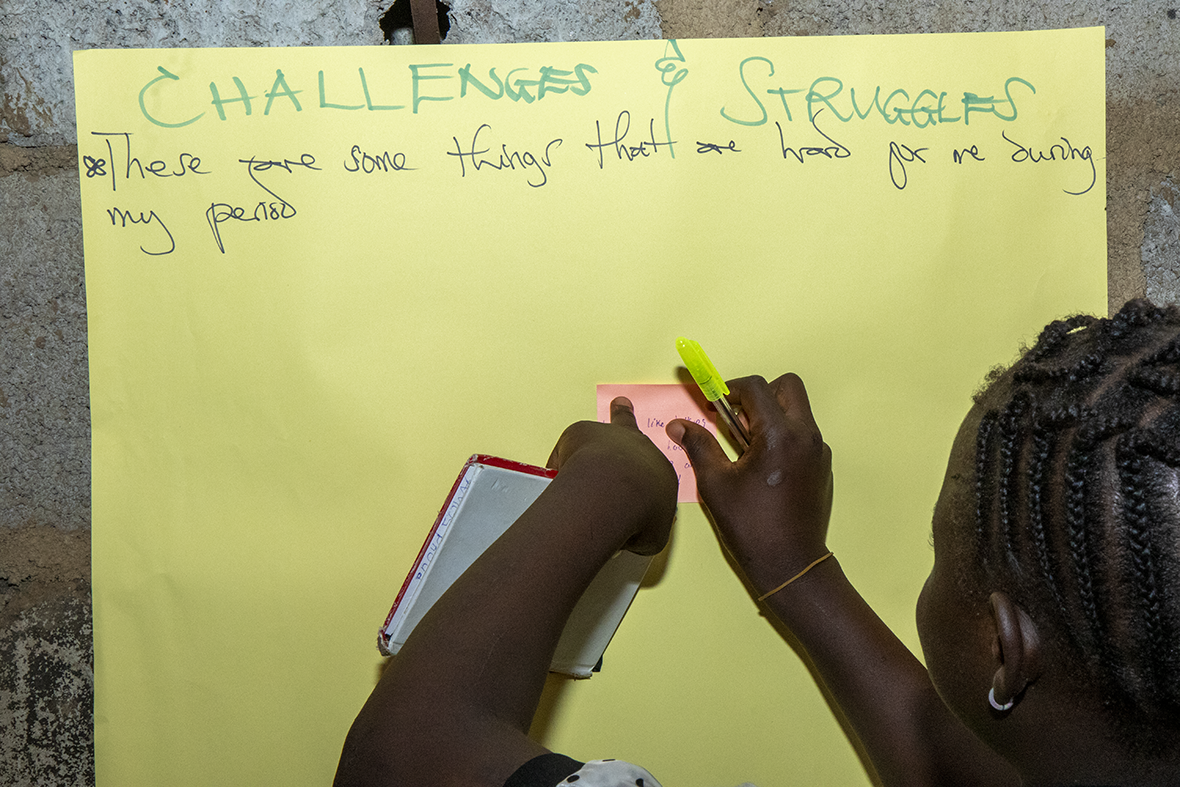 CHALLENGES & STRUGGLES
*These are some things that are hard for me during
my period
like